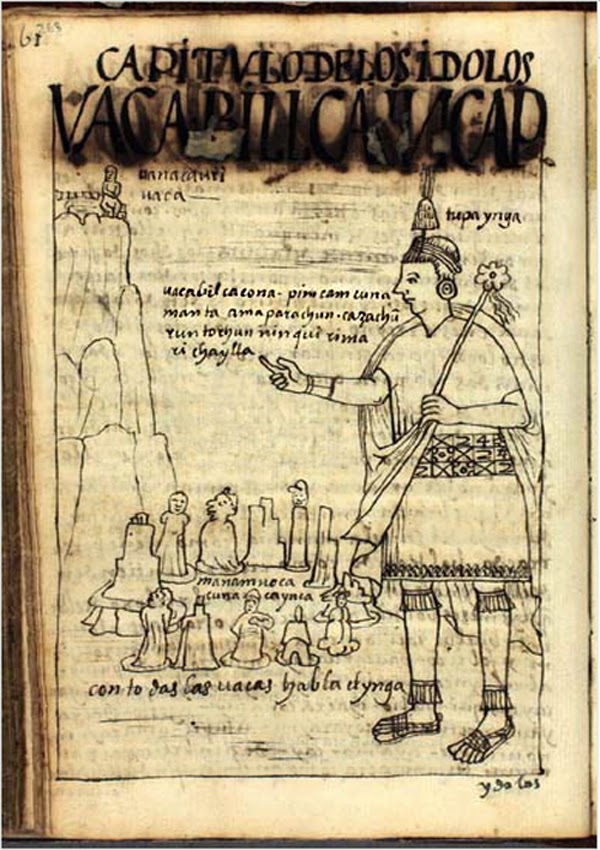 CAPITVLODELOSIDOLOS
VACABILLCAINCAP
uanacauri
uaca
tupa ynga
uacabilcacona. pim camcuna
manta ama parachun. cazachū
runtochun ninqui rima
ri chaylla
manam noca
cuna caynca
con todas las uacas habla el ynga
ydolos